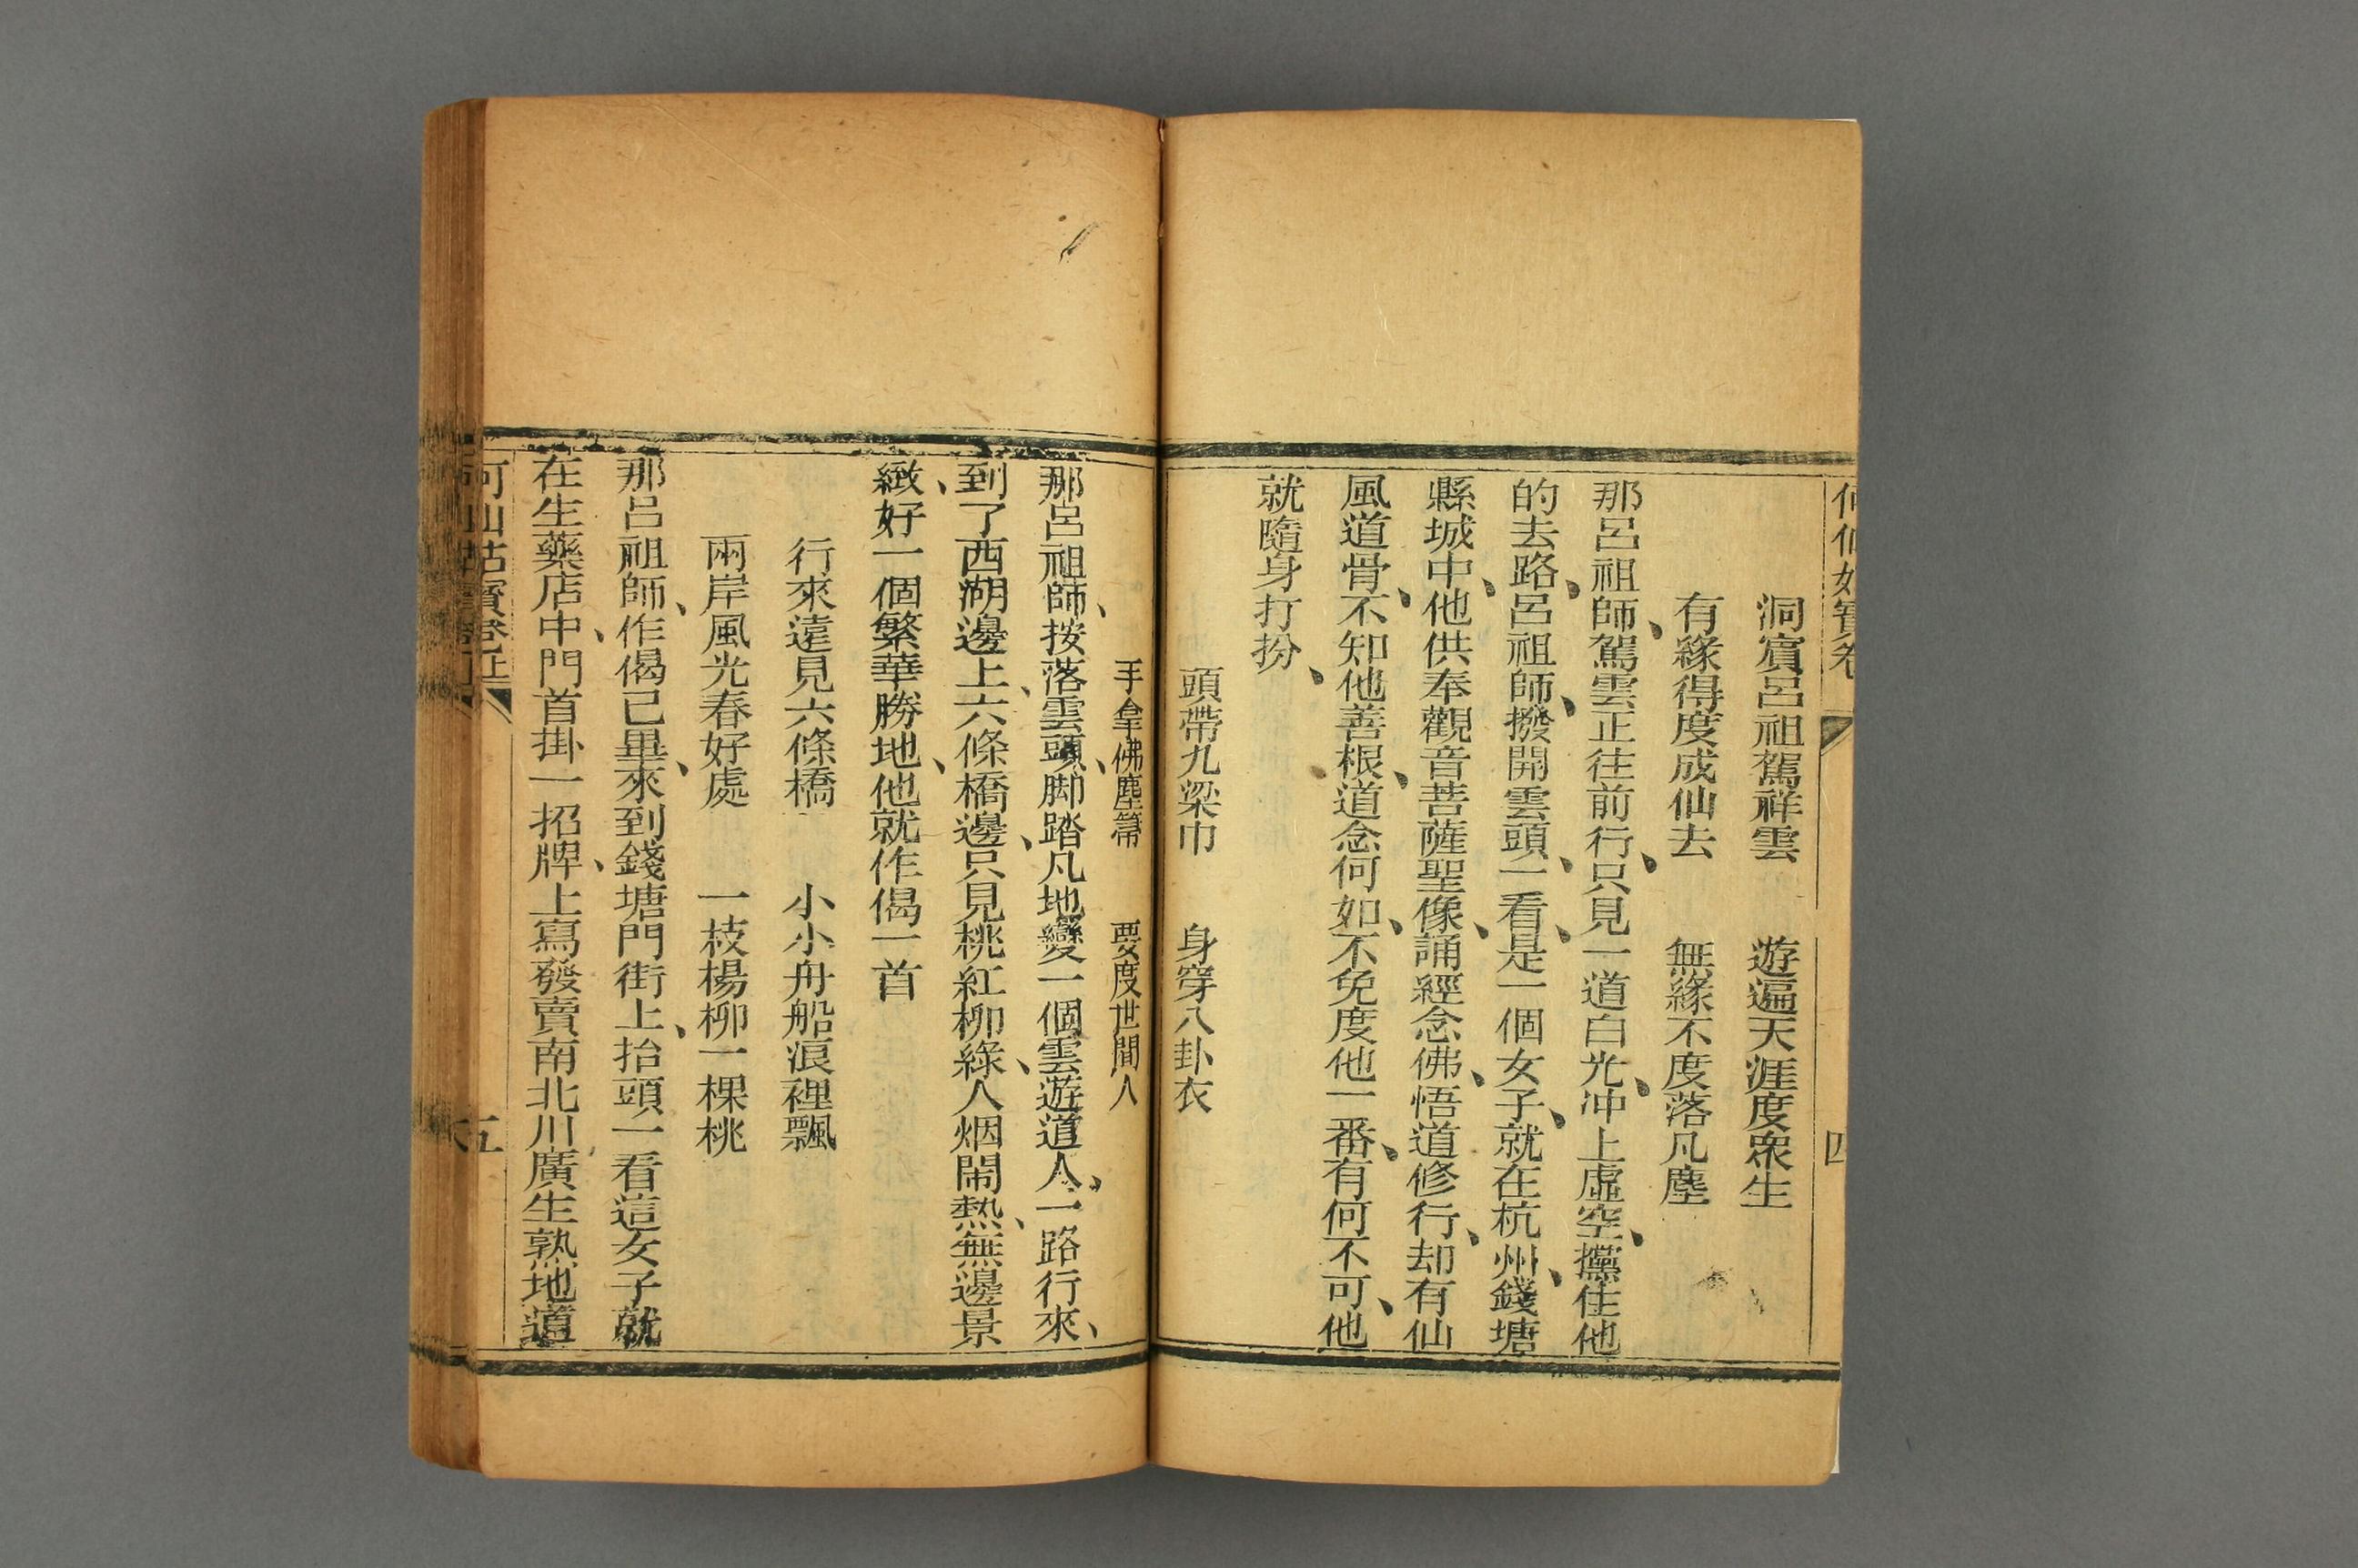 何仙姑寶卷
四
洞賓呂祖駕祥雲　遊遍天涯度衆生
有緣得度成仙去　無緣不度落凡塵
那呂祖師、駕雲正往前行、只見一道白光、冲上虛空、攩住他
的去路、呂祖師、撥開雲頭、一看、是一個女子、就在杭州、錢塘
縣城中、他供奉觀音菩薩聖像、誦經念佛、悟道修行、却有仙
風道骨、不知他善根、道念何如、不免度他一番、有何不可、他
就隨身打扮、
頭帶九梁巾　身穿八卦衣
手拿佛塵箒　要度世間人
那呂祖師、按落雲頭、脚踏凡地變一個雲遊道人、一路行來、
到了西湖邊上、六條橋邊、只見桃紅柳綠、人烟閙熱、無邊景
緻、好一個繁華勝地、他就作偈一首
行來遠見六條橋　小小舟船浪裡飄
兩岸風光春好處　一枝楊柳一棵桃
那呂祖師、作偈已畢、來到錢塘門街上、抬頭一看這女子就
在生藥店中、門首掛一招牌、上寫發賣南北川廣生熟地道
何仙姑寶卷上
五